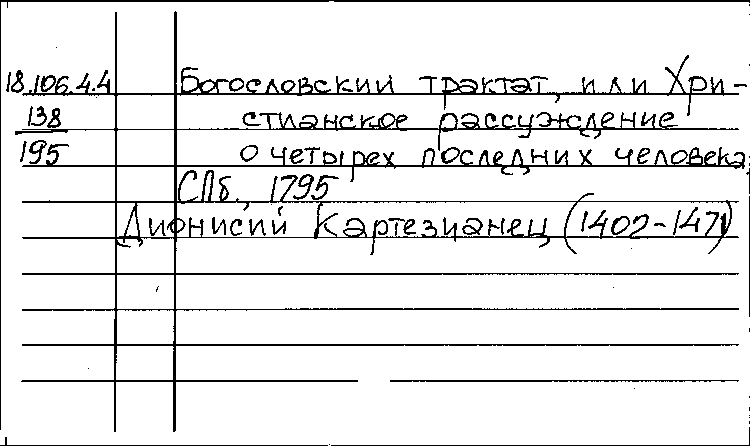 18.106.4.4 Богословский трактат, или Хри-
138 стианское рассуждение
195 о четырех последних человека,
СПб., 1795
Дионисий Картезианец (1402-1471)